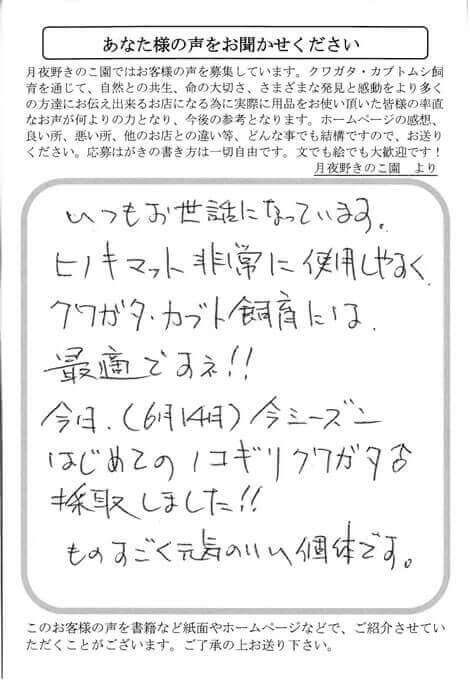 あなた様の声をお聞かせください
月夜野きのこ園ではお客様の声を募集しています。クワガタ・カブトムシ飼
育を通じて、自然との共生、命の大切さ、さまざまな発見と感動をより多く
の方達にお伝え出来るお店になる為に実際に用品をお使い頂いた皆様の率直
なお声が何よりの力となり、今後の参考となります。ホームページの感想、
良い所、悪い所、他のお店との違い等、どんな事でも結構ですので、お送り
ください。応募はがきの書き方は一切自由です。文でも絵でも大歓迎です！
月夜野きのこ園 より
いつもお世話になっています。
ヒノキマット非常に使用しやすく
クワガタ・カブト飼育には、
最適ですネ!!
今日、(6月14日)今シーズン
はじめてのノコギリクワガタ♂
採取しました!!
ものすごく元気のいい個体です。
このお客様の声を書籍など紙面やホームページなどで、ご紹介させてい
ただくことがございます。ご了承の上お送り下さい。